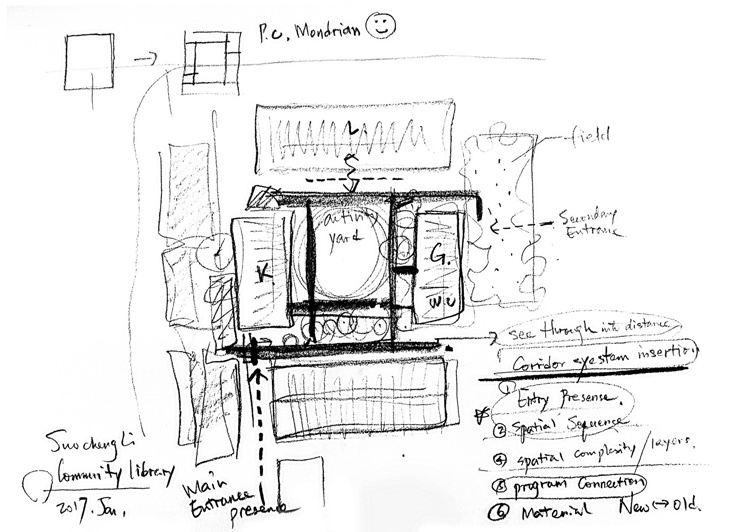 P.C. Mondrian
L
field
activity
yard
Secondary
Entrance
K.
G.
W.C
see through into distance
Corridor syestem insertion
① Entry Presense.
② Spatial Sequence
④ spatial complexity / layers.
⑤ program Connection
⑥ Material New ↔ Old.
Suochengli
Community library
2017. Jan.
Main
Entrance
presence